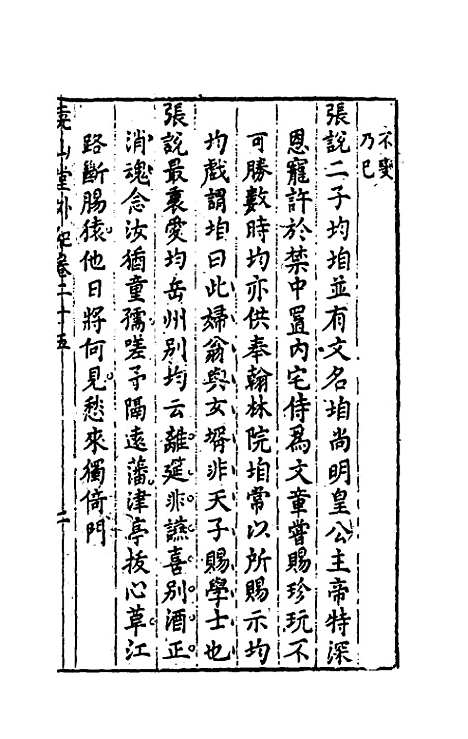 不變
乃已
張說二子均垍並有文名垍尚明皇公主帝特深
恩寵許於禁中置内宅侍爲文章嘗賜珍玩不
可勝數時均亦供奉翰林院垍常以所賜示均
均戲謂垍曰此婦翁與女壻非天子賜學士也
張說最鍾愛均岳州別均云離筵非讌喜別酒正
消魂念汝猶童孺嗟予隔遠藩津亭拔心草江
路斷腸猿他日將何見愁來獨倚門
堯山堂外紀卷二十五
二